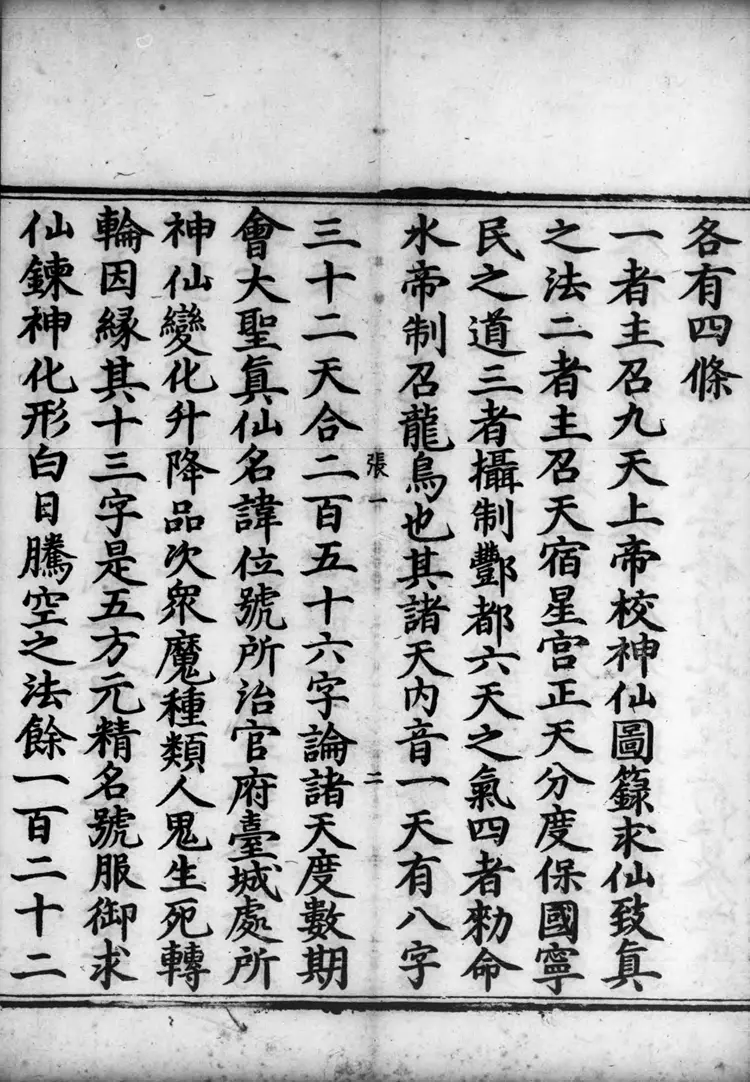 各有四條
一者主召九天上帝校神仙圖籙求仙致真
之法二者主召天宿星宮正天分度保國寧
民之道三者攝制酆都六天之氣四者勑命
水帝制召龍鳥也其諸天內音一天有八字
張一
二
三十二天合二百五十六字論諸天度數期
會大聖真仙名諱位號所治官府臺城處所
神仙變化升降品次衆魔種類人鬼生死轉
輪因緣其十三字是五方元精名號服御求
仙鍊神化形白日騰空之法餘一百二十二